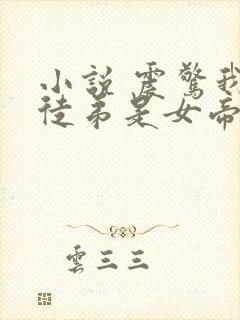 小說 震驚我
徒弟是女帝
雲三三